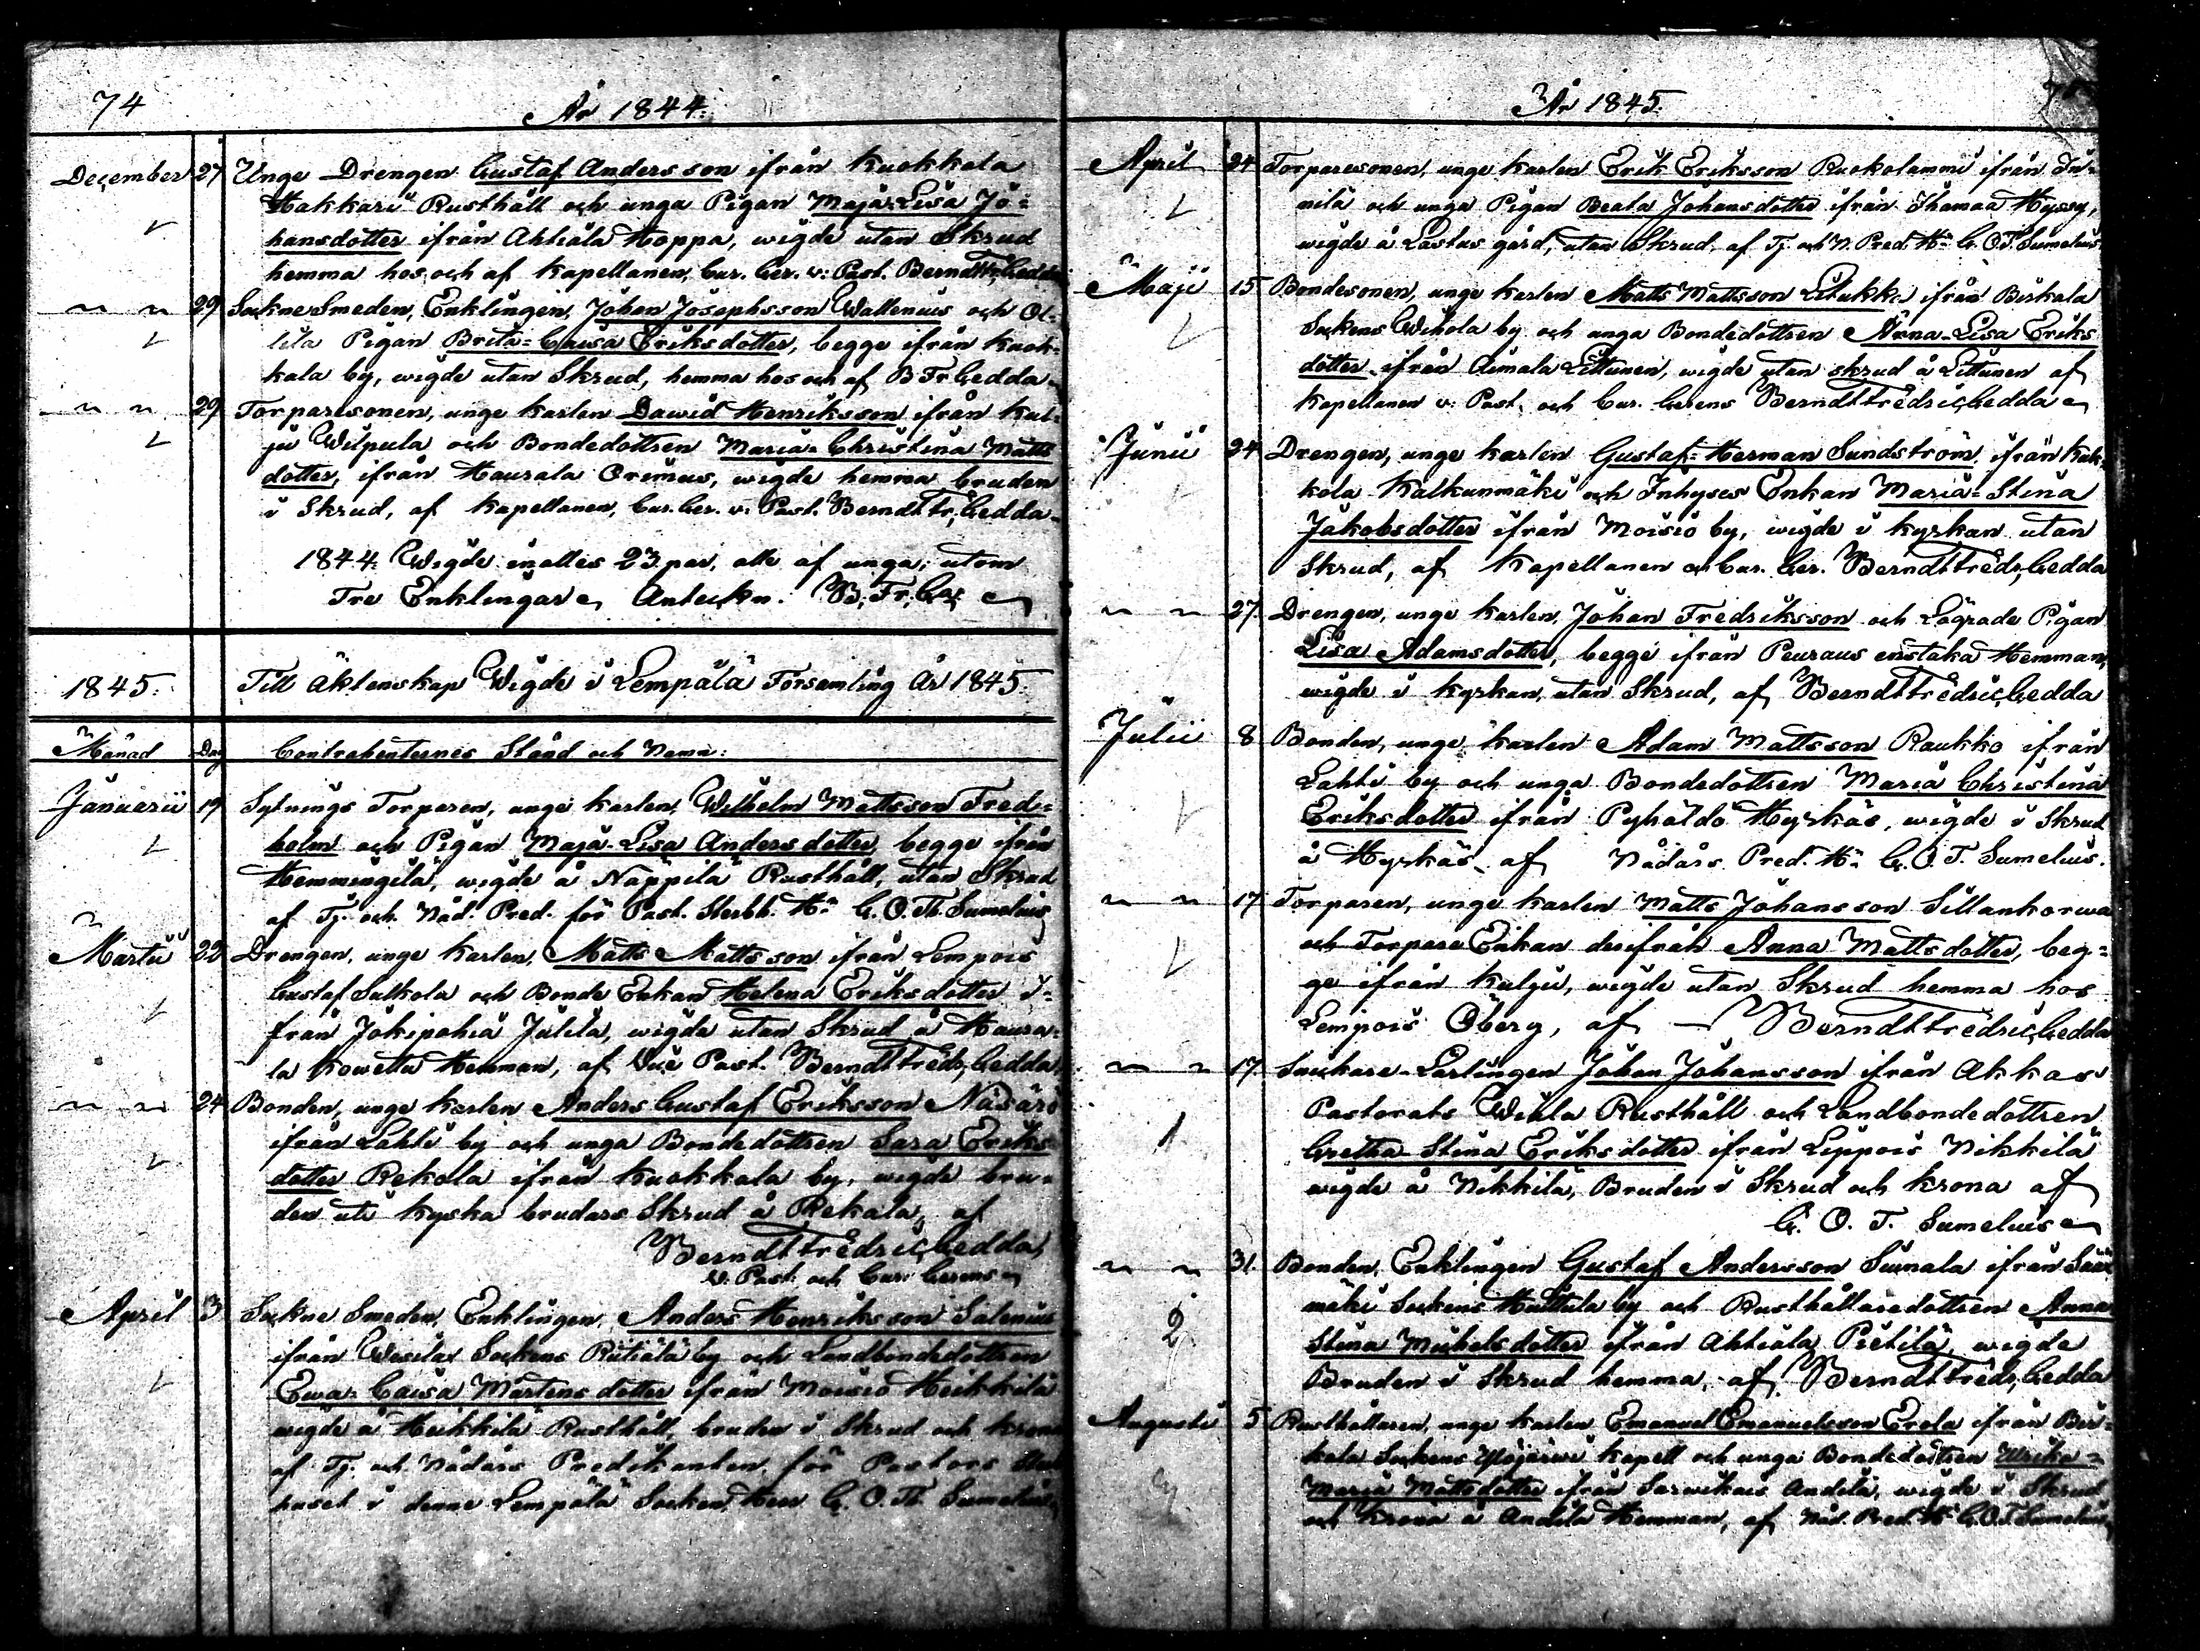 74
År 1844.
December 27 Unge Drengen Gustaf Andersson ifrån Kuokkala
Hakkari Rusthåll och unga Pigan Maja Lisa Jo=
hansdotter ifrån Ahtiala Hoppa, wigde utan Skrud
hemma hos och af Kapellanen, Cur. Ger. v: Past. Berndt Fr. Gedda
" " 29 Sockne Smeden, Enklingen, Johan Josephsson Wallenius och
Pigan Brita=Caisa Eriksdotter, begge ifrån Kuok=
kala by, wigde utan Skrud, hemma hos och af B Fr Gedda
" " 29 Torparesonen, unge Karlen Dawid Henriksson ifrån Kul=
ju Wilpula och Bondedottren Maria=Christina Matts
dotter, ifrån Haurala Orimus, wigde hemma bruden
i Skrud, af Kapellanen, Cur. Ger. v: Past. Berndt Fr. Gedda
1844. Wigde inalles 23 par, alla af unga, utom
Tre Enklingar. Anteckn. B: Fr: Ga:
1845. Till Äktenskap Wigde i Lempälä Församling År 1845.
Månad Dag Contrahenternes Stånd och Namn:
Januarii 19 Sytnings Torparen, unge Karlen, Wilhelm Mattsson Fred=
holm och Pigan Maja-Lisa Andersdotter, begge ifrån
Hemmingilä, wigde å Näppilä Rusthåll, utan Skrud
af Tj. och Nåd. Pred. för Past. Sterbh. Hr G. O. Th. Sumelius
Martii 22 Drengen, unge Karlen, Matts Mattsson ifrån Lempois
Gustaf Sulkola och Bonde Enkan Helena Eriksdotter i=
från Jokipohia Julila, wigde utan Skrud å Haura=
la Kowetta Hemman, af Vice Past. Berndt Fredr. Gedda
" " 24 Bonden, unge Karlen Anders Gustaf Eriksson Näsäri
ifrån Lahti by och unga Bondedottren Sara Eriks
dotter Rekola ifrån Kuokkala by, wigde bru=
den uti kyska brudars Skrud å Rekala, af
Berndt Fredric Gedda,
v: Past. och Cur. Gerens
April 3 Sockne Smeden, Enklingen, Anders Henriksson Salenius
ifrån Wesilax Sockens by och Landbondedottren
Ewa=Caisa Mårtensdotter ifrån Moisio Heikkilä
wigde å Heikkilä Rusthåll, bruden i Skrud och krona
af Tj. och Nådårs Predikanten för Pastors Sterb
huset i denne Lempälä Socken, Herr G. O. Th. Sumelius
År 1845.
April 24 Torparesonen, unge Karlen Erik Eriksson Ruokolammi ifrån In=
nilä och unga Pigan Beata Johansdotter ifrån Thamaa Hyssy,
wigde å Lastus gård, utan Skrud, af Tj. och N. Pred. Hr G. O. T. Sumelius
Maji 15 Bondesonen, unge Karlen Matts Mattsson Liukko ifrån Birkala
Sockens Wihola by och unga Bondedottren Anna-Lisa Eriks
dotter ifrån Aimala Littunen, wigde utan skrud å Littunen af
Kapellanen v: Past. och Cur. Gerens Berndt Fredric Gedda
Junii 24 Drengen, unge Karlen Gustaf=Herman Sundström, ifrån Kuk=
kola Kalkunmäki och Inhyses Enkan Maria=Stina
Jakobsdotter ifrån Moisio by, wigde i kyrkan utan
Skrud, af Kapellanen o Cur. Ger. Berndt Fredr. Gedda
" " 27 Drengen, unge Karlen, Johan Fredriksson och Lägrade Pigan
Lisa Adamsdotter, begge ifrån Peuraus enstaka Hemman,
wigde i kyrkan, utan Skrud, af Berndt Fredric Gedda
Julii 8 Bonden, unge Karlen Adam Mattsson Raukko ifrån
Lahti by och unga Bondedottren Maria Christina
Eriksdotter ifrån Pyhäldö Hyrkäs, wigde i Skrud
å Hyrkäs af Nådårs Pred. Hr G. O. T. Sumelius.
" " 17 Torparen, unge Karlen Matts Johansson Sillankorwa
och Torpare Enkan derifrån Anna Mattsdotter, beg=
ge ifrån Kulju, wigde utan Skrud hemma hos
Lempois Öberg, af Berndt Fredric Gedda
" " 17 Snickare-Lärlingen Johan Johansson ifrån Akkas
1 Pastorats Wiala Rusthåll och Landbondedottren
Gretha Stina Eriksdotter ifrån Lippois Nikkilä
wigde å Nikkilä, Bruden i Skrud och krona af
G. O. T. Sumelius
" " 31 Bonden, Enklingen Gustaf Andersson Suinala ifrån Sääx
2 mäki Sockens Huttula by och Rusthållaredottren Anna
Stina Michelsdotter ifrån Ahtiala Pietilä, wigde
Bruden i Skrud hemma, af Berndt Fredr. Gedda
Augusti 5 Rusthållaren, unge Karlen Emanuel Emanuelsson Erola ifrån Bir=
3 kala Sockens Ylöjärwi Kapell och unga Bondedottren Ulrika=
Maria Mattsdotter ifrån Sarwikais Andila, wigde i Skrud
och krona å Andila Hemman, af Nåd. Pred. Hr G. O. T. Sumelius